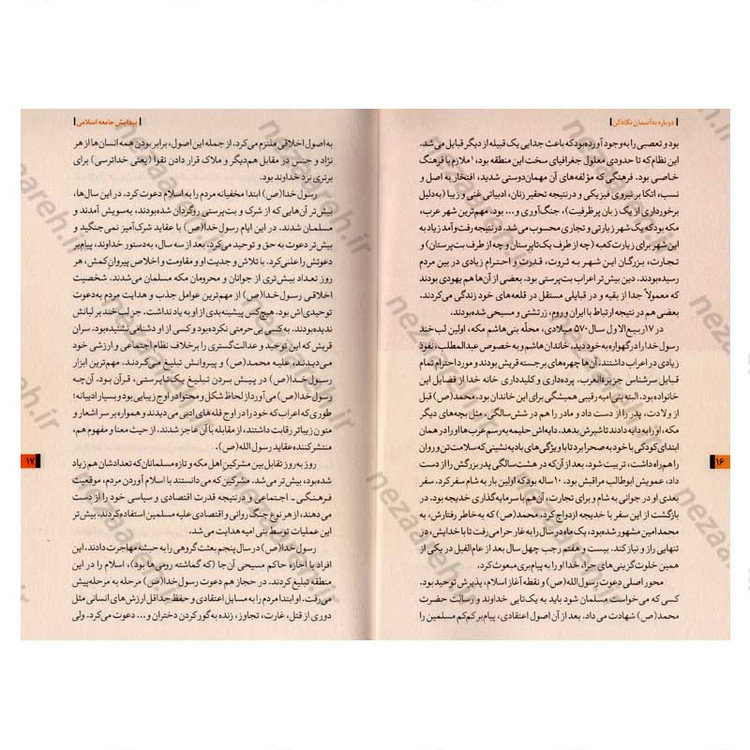 دوباره به آسمان نگاه کن
بود و تعصبی را به وجود آورده بود که باعث جدایی یک قبیله از دیگر قبایل می‌شد.
این نظام که تا حدودی معلول جغرافیای سخت این منطقه بود، ملازم با فرهنگ
خاصی بود. فرهنگی که مؤلفه‌های آن مهمان‌دوستی شدید، افتخار به اصل و
نسب، اتکا بر نیروی فیزیکی و در نتیجه تحقیر زنان، ادبیاتی غنی و زیبا (به‌دلیل
برخورداری از یک زبان پرظرفیت)، جنگ‌آوری و... بود. مهم‌ترین شهر عرب،
مکه بود که یک شهر زیارتی و تجاری محسوب می‌شد. در نتیجه رفت‌وآمد زیاد به
این شهر برای زیارت کعبه (چه از طرف یکتاپرستان و چه از طرف بت‌پرستان) و
تجارت، بزرگان این شهر به ثروت، قدرت و احترام زیادی در بین مردم
رسیده بودند. دین بیش‌تر اعراب بت‌پرستی بود. بعضی از آن‌ها هم یهودی بودند
که معمولاً جدا از بقیه و در قبایلی مستقل در قلعه‌های خود زندگی می‌کردند.
بعضی هم در نتیجه ارتباط با ایران و روم، زرتشتی و مسیحی شده بودند.
در ۱۷ ربیع الاول سال ۵۷۰ میلادی، محلّه بنی‌هاشم مکه، اولین لبخند
رسول خدا را در گهواره به خود دید. خاندان هاشم و به خصوص عبدالمطلب، نفوذ
زیادی در اعراب داشتند، آن‌ها چهره‌های برجسته قریش بودند و مورد احترام تمام
قبایل سرشناس جزیرةالعرب. پرده‌داری و کلیدداری خانه خدا از فضایل این
خانواده بود. البته بنی امیه رقیبی همیشگی برای این خاندان بود. محمد(ص) قبل
از ولادت، پدر را از دست داد و مادر را هم در شش‌سالگی. مثل بچه‌های دیگر
مکه، او را به دایه دادند تا شیرش بدهد. دایه‌اش حلیمه به رسم عرب‌ها او را در همان
ابتدای کودکی با خود به صحرا برد تا با ویژگی‌های بادیه‌نشینی که سلامت تن و روان
را همراه داشت، تربیت شود. بعد از آن که در هشت‌سالگی پدربزرگش را از دست
داد، عمویش ابوطالب مراقبش بود. ۱۰ ساله بود که اولین بار به شام سفر کرد. سفر
بعدی او در جوانی به شام و برای تجارت، آن هم با سرمایه‌گذاری خدیجه بود. در
بازگشت از این سفر با خدیجه ازدواج کرد. محمد(ص) که به‌خاطر رفتارش، به
محمد امین مشهور شده بود، یک ماه در سال را به غار حرا می‌رفت تا با خدایش، در
تنهایی راز و نیاز کند. بیست و هفتم رجب چهل سال بعد از عام الفیل در یکی از
همین خلوت‌گزینی‌های حرا، خدا او را به پیام‌بری مبعوث کرد.
محور اصلی دعوت رسول الله(ص) و نقطه آغاز اسلام، پذیرش توحید بود.
کسی که می‌خواست مسلمان شود باید به یکتایی خداوند و رسالت حضرت
محمد(ص) شهادت می‌داد. بعد از آن اصول اعتقادی، پیام‌بر کم‌کم مسلمین را
۱۶
پیدایش جامعه اسلامی
به اصول اخلاقی ملتزم می‌کرد. از جمله این اصول، برابر بودن همه انسان‌ها از هر
نژاد و جنس در مقابل هم‌دیگر و ملاک قرار دادن تقوا (یعنی خداترسی) برای
برتری نزد خداوند بود.
رسول خدا(ص) ابتدا مخفیانه مردم را به اسلام دعوت کرد. در این سال‌ها،
بیش‌تر آن‌هایی که از شرک و بت‌پرستی روگردان شده بودند، به‌سویش آمدند و
مسلمان شدند. در این ایام رسول خدا(ص) با عقاید شرک‌آمیز نمی‌جنگید و
بیش‌تر دعوت به حق و توحید می‌کرد. بعد از سه سال، به‌دستور خداوند، پیام‌بر
دعوتش را علنی کرد. با تلاش و جدیت او و مقاومت و اخلاص پیروان کمش، هر
روز تعداد بیش‌تری از جوانان و محرومان مکه مسلمان می‌شدند. شخصیت
اخلاقی رسول خدا(ص) از مهم‌ترین عوامل جذب و هدایت مردم به دعوت
توحیدی‌اش بود. هیچ‌کس پیشینه بدی از او به یاد نداشت. جز لبخند بر لبانش
ندیده بودند. به کسی بی‌حرمتی نکرده بود و کسی از او دشنامی نشنیده بود. سران
قریش که این توحید و عدالت‌گستری را برخلاف نظام اجتماعی و ارزشی خود
می‌دیدند، علیه محمد(ص) و پیروانش تبلیغ می‌کردند. مهم‌ترین ابزار
رسول خدا(ص) در پیش بردن تبلیغ یکتاپرستی، قرآن بود. آن‌چه
رسول خدا(ص) می‌آورد از لحاظ شکل و محتوا در اوج زیبایی بود و بسیار ادیبانه؛
طوری که اعراب که خود را در اوج قله‌های ادبی می‌دیدند و همواره بر سر اشعار و
متون زیباتر رقابت داشتند، از مقابله با آن عاجز شدند. از حیث معنا و مفهوم هم،
منتشرکننده عقاید رسول الله(ص).
روز به روز تقابل بین مشرکین اهل مکه و تازه مسلمانان که تعدادشان هم زیاد
شده بود، بیش‌تر می‌شد. مشرکین که می‌دانستند با اسلام آوردن مردم، موقعیت
فرهنگی - اجتماعی و در نتیجه قدرت اقتصادی و سیاسی خود را از دست
می‌دهند، از هر نوع جنگ روانی و اقتصادی علیه مسلمین استفاده کردند. بیش‌تر
این عملیات توسط بنی امیه هدایت می‌شد.
رسول خدا(ص) در سال پنجم بعثت گروهی را به حبشه مهاجرت دادند، این
افراد با اجازه حاکم مسیحی آن‌جا (که گماشته رومی‌ها بود)، اسلام را در این
منطقه تبلیغ کردند. در حجاز هم دعوت رسول خدا(ص) مرحله به مرحله پیش
می‌رفت. او ابتدا مردم را به مسایل اعتقادی و حفظ حداقل ارزش‌های انسانی مثل
دوری از قتل، غارت، تجاوز، زنده به گور کردن دختران و... دعوت می‌کرد. ولی
۱۷
nezaareh.ir